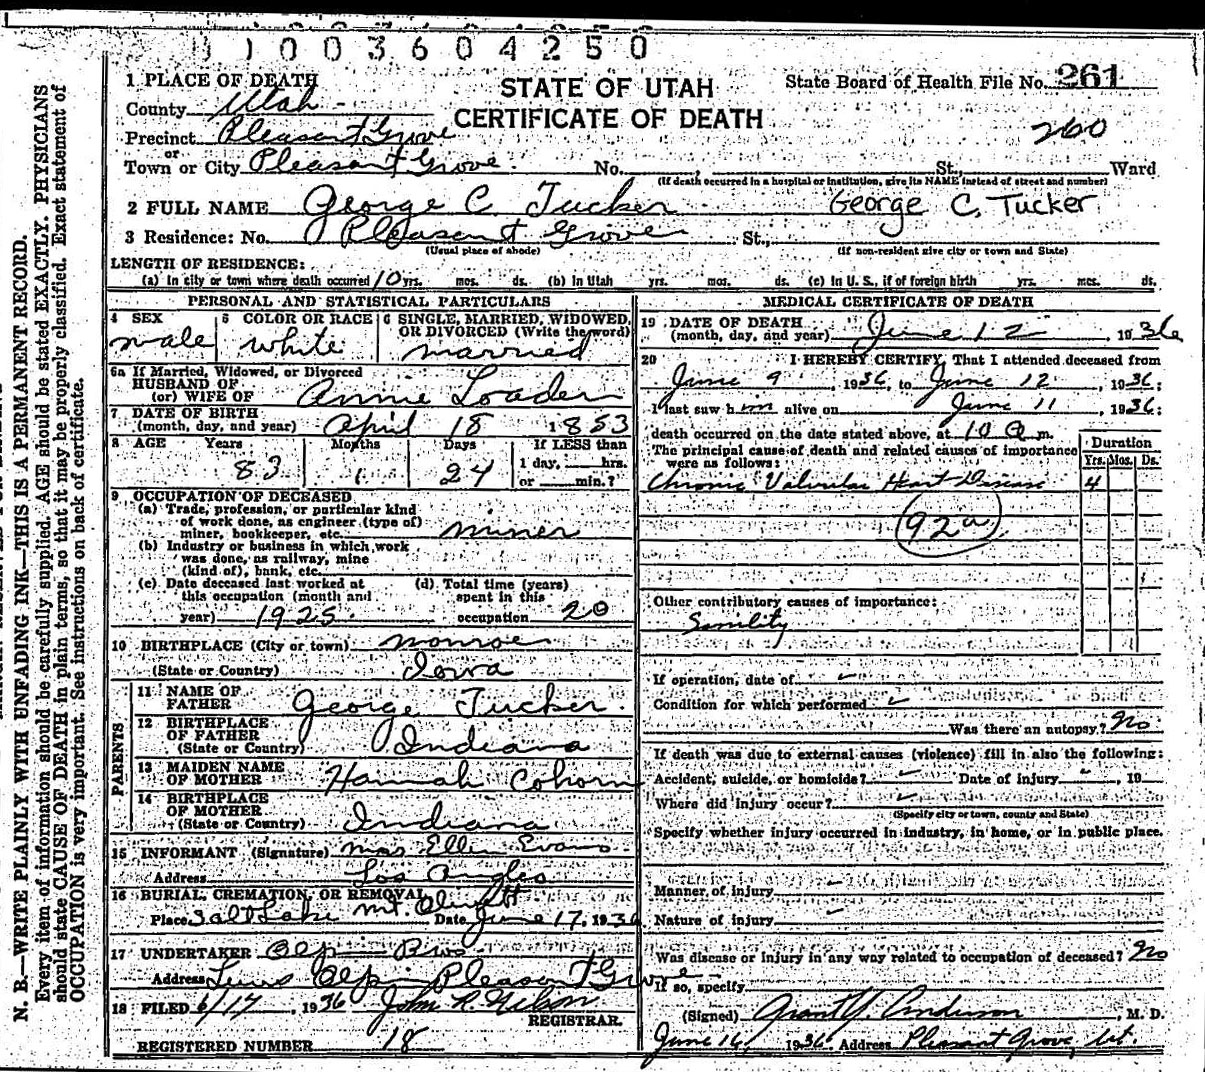 0 1 0 0 3 6 0 4 2 5 0
1 PLACE OF DEATH
STATE OF UTAH
CERTIFICATE OF DEATH
State Board of Health File No. 261
260
County Utah
Precinct Pleasant Grove
or
Town or City Pleasant Grove No. , St., Ward
(If death occurred in a hospital or institution, give its NAME instead of street and number)
2 FULL NAME George C Tucker George C. Tucker
3 Residence: No. Pleasant Grove St.,
(Usual place of abode) (If non-resident give city or town and State)
LENGTH OF RESIDENCE:
(a) In city or town where death occurred 10 yrs. mos. ds. (b) In Utah yrs. mos. ds. (c) In U. S., if of foreign birth yrs. mos. ds.
PERSONAL AND STATISTICAL PARTICULARS
4 SEX male
5 COLOR OR RACE white
6 SINGLE, MARRIED, WIDOWED, OR DIVORCED (Write the word) married
6a If Married, Widowed, or Divorced
HUSBAND OF
(or) WIFE OF Annie Loader
7 DATE OF BIRTH
(month, day, and year) April 18 1853
8 AGE Years Months Days If LESS than
83 1 24 1 day, hrs.
or min.?
9 OCCUPATION OF DECEASED
(a) Trade, profession, or particular kind
of work done, as engineer (type of)
miner, bookkeeper, etc. miner
(b) Industry or business in which work
was done, as railway, mine
(kind of), bank, etc.
(c) Date deceased last worked at
this occupation (month and
year) 1925
(d) Total time (years)
spent in this
occupation 20
10 BIRTHPLACE (City or town) monroe
(State or Country) Iowa
PARENTS
11 NAME OF
FATHER George Tucker
12 BIRTHPLACE
OF FATHER
(State or Country) Indiana
13 MAIDEN NAME
OF MOTHER Hannah Cohorn
14 BIRTHPLACE
OF MOTHER
(State or Country) Indiana
15 INFORMANT (Signature) Mrs Ellen Evans
Address Los Angles
16 BURIAL, CREMATION, OR REMOVAL
Place Salt Lake Mt. Olivett Date June 17, 1936
17 UNDERTAKER Olpin Bros
Address Pleasant Grove
18 FILED 6/17, 1936 John R. Nelson
REGISTRAR.
REGISTERED NUMBER 18
MEDICAL CERTIFICATE OF DEATH
19 DATE OF DEATH
(month, day, and year) June 12 1936
20 I HEREBY CERTIFY, That I attended deceased from
June 9, 1936, to June 12, 1936;
I last saw him alive on June 11, 1936;
death occurred on the date stated above, at 10 a m.
The principal cause of death and related causes of importance
were as follows:
Duration
Yrs. Mos. Ds.
Chronic Valvular Heart Disease 4
92a
Other contributory causes of importance:
Sinility
If operation, date of
Condition for which performed
Was there an autopsy? No
If death was due to external causes (violence) fill in also the following:
Accident, suicide, or homicide? Date of injury , 19
Where did injury occur?
(Specify city or town, county and State)
Specify whether injury occurred in industry, in home, or in public place.
Manner of injury
Nature of injury
Was disease or injury in any way related to occupation of deceased? No
If so, specify
(Signed) Grant Y. Anderson, M. D.
June 16, 1936 Address Pleasant Grove, Ut.
N. B.—WRITE PLAINLY WITH UNFADING INK—THIS IS A PERMANENT RECORD.
Every item of information should be carefully supplied. AGE should be stated EXACTLY. PHYSICIANS
should state CAUSE OF DEATH in plain terms, so that it may be properly classified. Exact statement of
OCCUPATION is very important. See instructions on back of certificate.